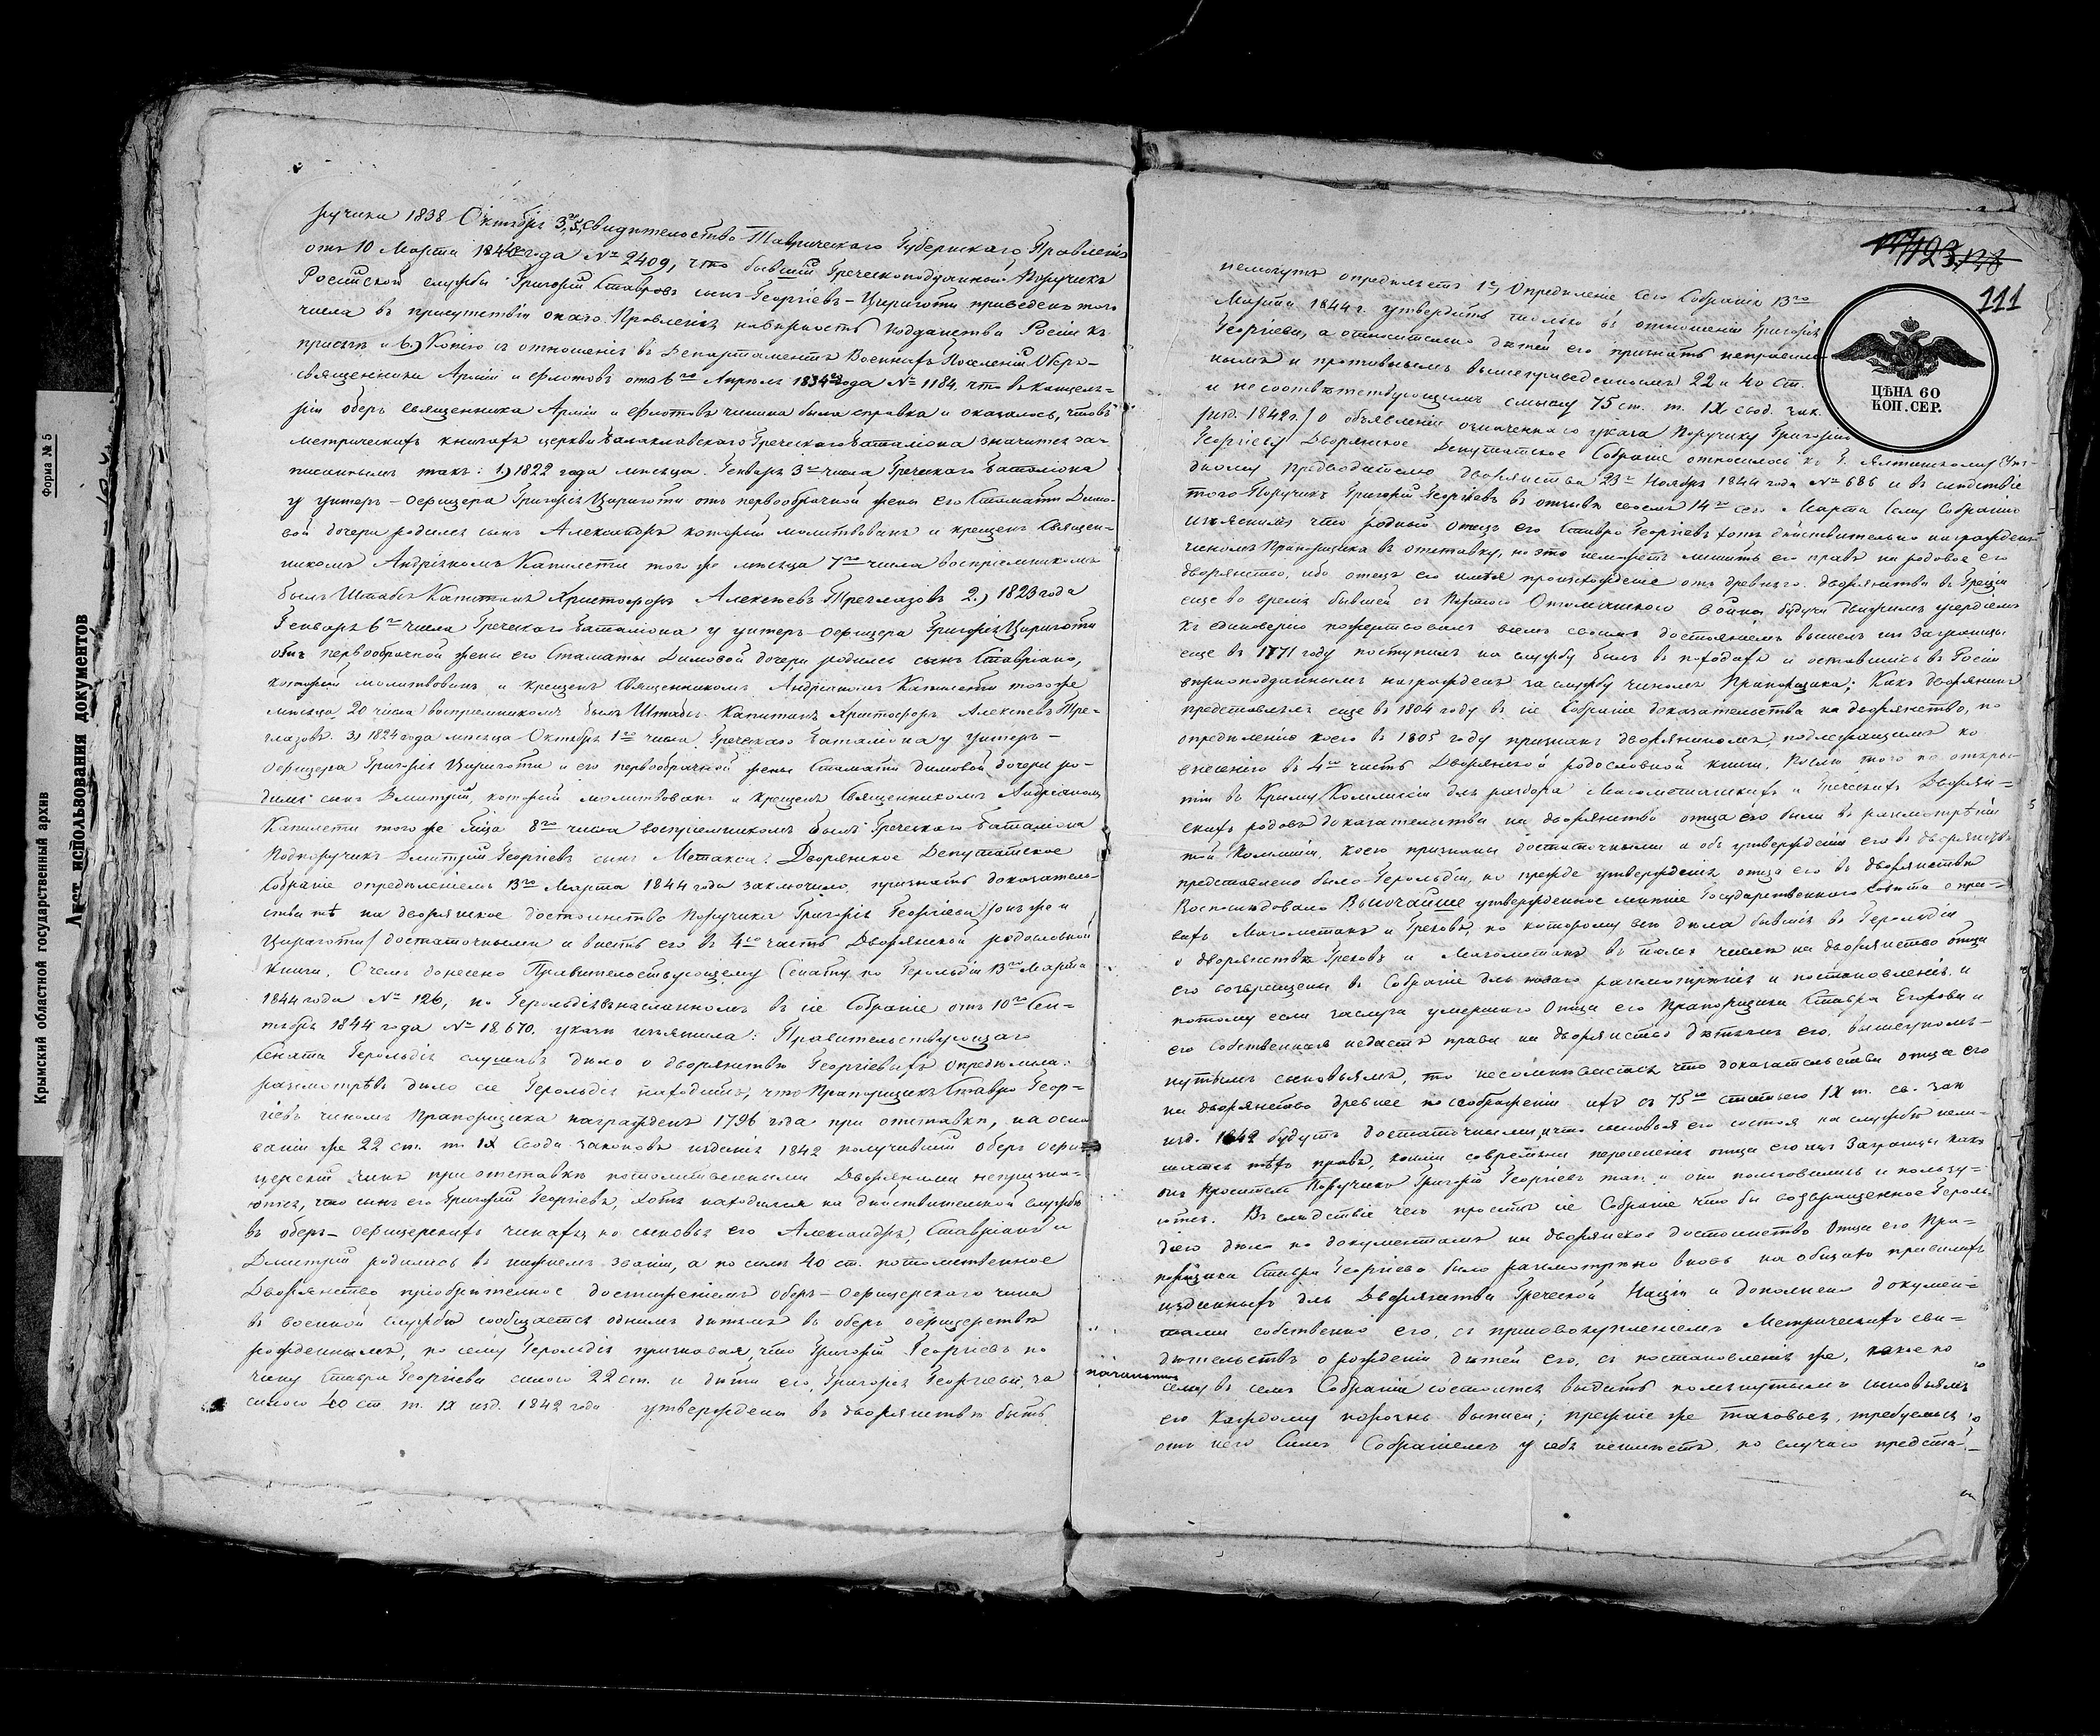 ручика 1838 Октября 3го, 5, Свидетельство Таврическаго Губернскаго Правленія
отъ 10 Марта 1840 года № 2409, что бывшій Греческоподданный Поручикъ
Россійской службы Григорій Ставровъ сынъ Георгіевъ-Цириготи приведенъ того
числа въ присутствіи онаго Правленія на вѣрность подданства Россіи къ
присягѣ и 6.) Копію съ отношенія въ Департаментъ Военныхъ Поселеній Оберъ-
священника Арміи и Флотовъ отъ 6го Апрѣля 1834 года № 1184, что въ канцеля-
ріи оберъ священника Арміи и флотовъ чинима была справка и оказалось, что въ
метрическихъ книгахъ церкви Балаклавскаго Греческаго Баталіона значится за-
писаннымъ такъ: 1.) 1822 года мѣсяца Генваря 3го числа Греческаго Баталіона
у унтеръ-офицера Григорія Цириготи отъ первобрачной жены его Стамати Димо-
вой дочери родился сынъ Александръ который молитвованъ и крещенъ Священ-
никомъ Андріаномъ Капилети того же мѣсяца 7го числа воспріемникомъ
былъ Штабсъ Капитанъ Христофоръ Алексѣевъ Треглазовъ 2.) 1823 года
Генваря 6го числа Греческаго Баталіона у унтеръ-офицера Григорія Цириготи
отъ первобрачной жены его Стаматы Димовой дочери родился сынъ Ставріано,
который молитвованъ и крещенъ Священникомъ Андріаномъ Капилети того же
мѣсяца 20 числа воспріемникомъ былъ Штабсъ Капитанъ Христофоръ Алексѣевъ Тре-
глазовъ. 3) 1824 года мѣсяца Октября 1го числа Греческаго Баталіона у унтеръ-
офицера Григорія Цириготи и его первобрачной жены Стамати Димовой дочери ро-
дился сынъ Дмитрій, который молитвованъ и крещенъ Священникомъ Андріаномъ
Капилети того же мѣсяца 8го числа воспріемникомъ былъ Греческаго Баталіона
Подпоручикъ Дмитрій Георгіевъ сынъ Метакса. Дворянское Депутатское
Собраніе опредѣленіемъ 13го Марта 1844 года заключило, признать доказатель-
ства на дворянское достоинство Поручика Григорія Георгіева (онъ же и
Цириготи) достаточными и внесть его въ 4ю часть Дворянской родословной
книги. О чемъ донесено Правительствующему Сенату по Герольдіи 13го Марта
1844 года № 126, но Герольдія въ насланномъ въ сіе Собраніе отъ 10го Сен-
тября 1844 года № 18.670. указѣ изъяснила: Правительствующаго
Сената Герольдія слушавъ дѣло о дворянствѣ Георгіевыхъ Опредѣлила:
разсмотрѣвъ дѣло сіе Герольдія находитъ, что Прапорщикъ Ставро Геор-
гіевъ чиномъ Прапорщика награжденъ 1796 года при отставкѣ, на осно
ваніи же 22 ст. т. IX Свода законовъ изданія 1842 получившій оберъ офи-
церскій чинъ при отставкѣ потомственными Дворянами непризна-
ются, что сынъ его Григорій Георгіевъ, хотя находился на дѣйствительной службѣ
въ оберъ-офицерскихъ чинахъ, но сыновья его Александръ, Ставріанъ и
Дмитрій родились въ нижнемъ званіи, а по силѣ 40 ст. потомственное
Дворянство пріобрѣтенное достиженіемъ оберъ-офицерскаго чина
въ военной службѣ сообщается однимъ дѣтямъ въ оберъ офицерствѣ
рожденнымъ, по сему Герольдія признавая, что Григорій Георгіевъ по
чину Ставра Георгіева силою 22 ст. и дѣти его, Григорія Георгіева, за
силою 40 ст т. IX изд. 1842 года утверждены въ дворянствѣ быть
123
111
ЦѢНА 60
КОП. СЕР.
немогутъ опредѣляетъ 1е) Опредѣленіе Сего Собранія 13го
Марта 1844 г. утвердить только въ отношеніи Григорія
Георгіева, а относительно дѣтей его признать неправиль
нымъ и противнымъ вышеприведеннымъ 22 и 40 ст.
и несоотвѣтствующимъ смыслу 75 ст. т. IX свод. зак.
(изд. 1842 г.) о объявленіи означеннаго указа Поручику Григорію
Георгіеву Дворянское Депутатское Собраніе относилось къ Г. Ялтинскому Уѣз-
дному предводителю дворянства 23го Ноября 1844 года № 686 и въ слѣдствіе
того Поручикъ Григорій Георгіевъ въ отзывѣ своемъ 14го сего Марта сему Собранію
изъяснилъ что родный отецъ его Ставро Георгіевъ хотя дѣйствительно награжденъ
чиномъ Прапорщика въ отставку, но это неможетъ лишить его права на родовое его
дворянство, ибо отецъ его имѣя происхожденіе отъ древняго дворянства въ Греціи
еще во время бывшей съ Портою Оттоманскою войны будучи движимъ усердіемъ
къ единовѣрію пожертвовалъ всемъ своимъ достояніемъ вышелъ изъ Заграницы
еще въ 1771 году поступилъ на службу былъ въ походахъ и оставшись въ Россіи
вѣрноподданнымъ награжденъ за службу чиномъ Прапорщика; Какъ дворянинъ
представлялъ еще въ 1804 году въ сіе Собраніе доказательства на дворянство, по
опредѣленію коего въ 1805 году признанъ дворяниномъ, подлежащимъ ко
внесенію въ 4ю часть Дворянской родословной книги. Послѣ того по откры-
тіи въ Крыму Коммисіи для разбора Магометанскихъ и Греческихъ Дворян-
скихъ родовъ доказательства на дворянство отца его были въ разсмотрѣніи
той Коммисіи, коею признаны достаточными и объ утвержденіи его въ дворянствѣ
представлено было Герольдіи, но прежде утвержденія отца его въ дворянствѣ
Воспослѣдовало Высочайше утвержденное мнѣніе Государственнаго Совѣта о пра-
вахъ Магометанъ и Грековъ, по которому всѣ дѣла бывшія въ Герольдіи
о дворянствѣ Грековъ и Магометанъ въ томъ числѣ на дворянство отца
его возвращены въ Собраніе для новаго разсмотрѣнія и постановленія и
потому если заслуга умершаго Отца его Прапорщика Ставра Егорова и
его собственная недастъ права на дворянство дѣтямъ его, вышеупомя-
нутымъ сыновьямъ, то несомнѣвается что доказательства отца его
на дворянство древнее по соображеніи ихъ съ 75ю статьею IX т. св. зак
изд. 1842 будутъ достаточными, и что сыновья его состоя на службѣ нели-
шатся тѣхъ правъ, коими современи переселенія отца его изъ Заграницы какъ
онъ проситель Поручикъ Григорій Георгіевъ такъ и они пользовались и пользу-
ются. Въ слѣдствіе чего проситъ сіе Собраніе что бы возвращенное Героль-
діею дѣло по документамъ на дворянское достоинство Отца его Пра-
порщика Ставра Георгіева было разсмотрѣно вновь на общихъ правилахъ
изданныхъ для Дворянства Греческой Націи и дополнено докумен-
тами собственно его, съ присовокупленіемъ Метрическихъ сви-
дѣтельствъ о рожденіи дѣтей его, съ постановленія же, какое по
сему въ семъ Собраніи состоится выдать помянутымъ сыновьямъ
его каждому порознь выписи; прежніе же таковыя, требуемыя
отъ него Симъ Собраніемъ у себя неимѣетъ, по случаю предста-
Крымский областной государственный архив
Форма № 5
Лист использования документов